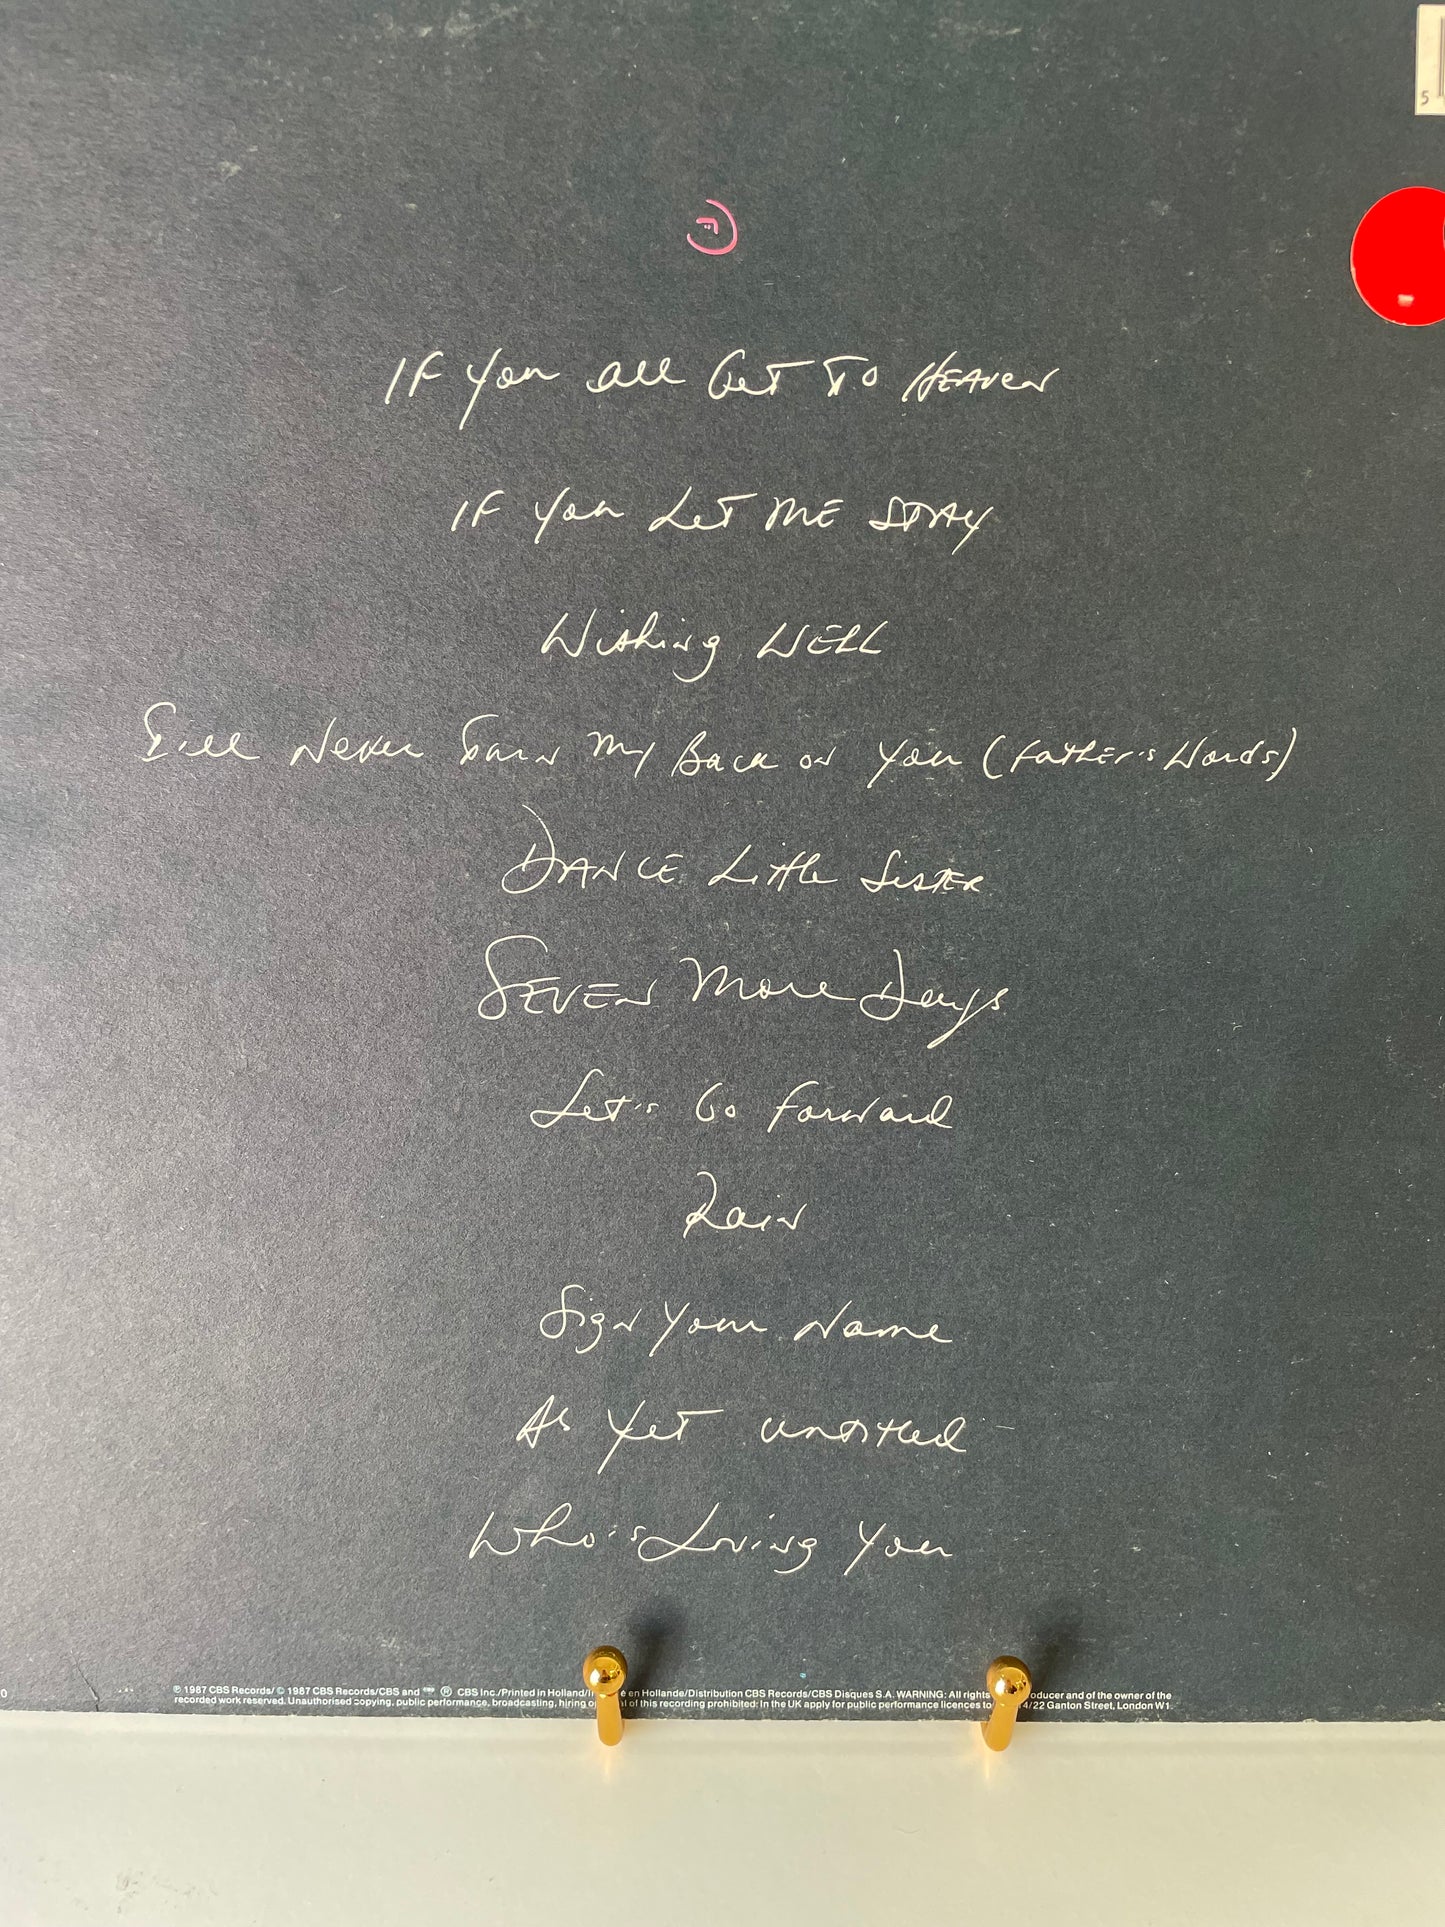 5
IF You All Get To HEAVEN
IF You Let ME STAY
Wishing WELL
I'll Never Turn My Back on You (Father's Words)
DANCE Little SISTER
SEVEN More Days
Let's Go Forward
Rain
Sign Your Name
As Yet Untitled
Who's Loving You
0
℗ 1987 CBS Records/ © 1987 CBS Records/CBS and ® CBS Inc./Printed in Holland/ é en Hollande/Distribution CBS Records/CBS Disques S.A. WARNING: All rights oducer and of the owner of the
recorded work reserved. Unauthorised copying, public performance, broadcasting, hiring of this recording prohibited: In the UK apply for public performance licences to 4/22 Ganton Street, London W1.